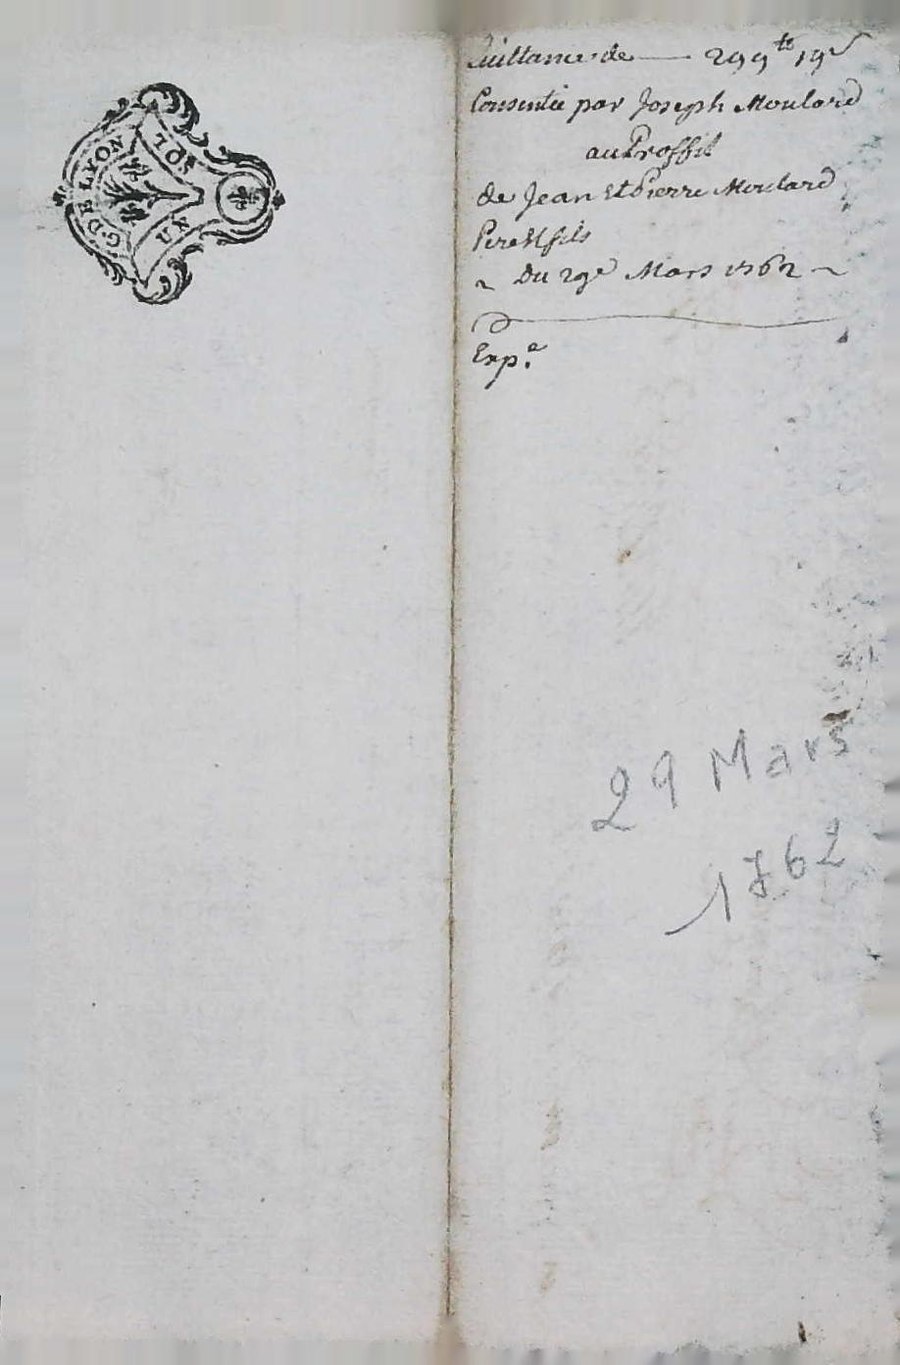 G. DE LYON
UN SOL
Quittance de —— 299ᵗᵗ 19ˢ
Consentie par Joseph Moulard
au Proffit
de Jean et Pierre Moulard
Pere et fils
~ Du 29ᵉ Mars 1762 ~
Exp.ᵉ
29 Mars
1762